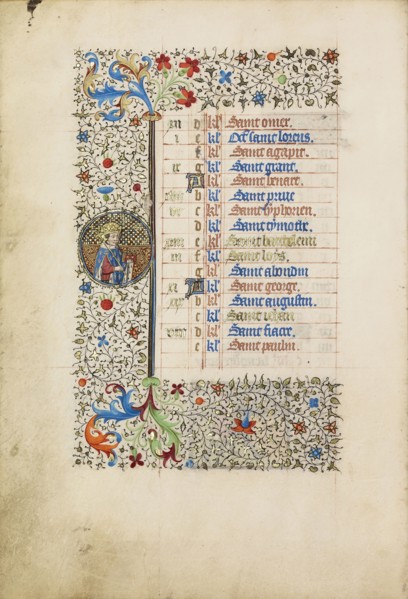 d kl Saint omer.
i e kl Oct saint lorens.
f kl Saint agapit.
ix g kl Saint
A kl Saint benart.
b kl Saint prive
c kl Saint syphorien.
d kl Saint tymote.
e kl Saint
iii f kl Saint loys.
g kl Saint abondin
xi A kl Saint george.
xix b kl Saint augustin.
c kl Saint iehan
viii d kl Saint fiacre.
e kl Saint paulin.